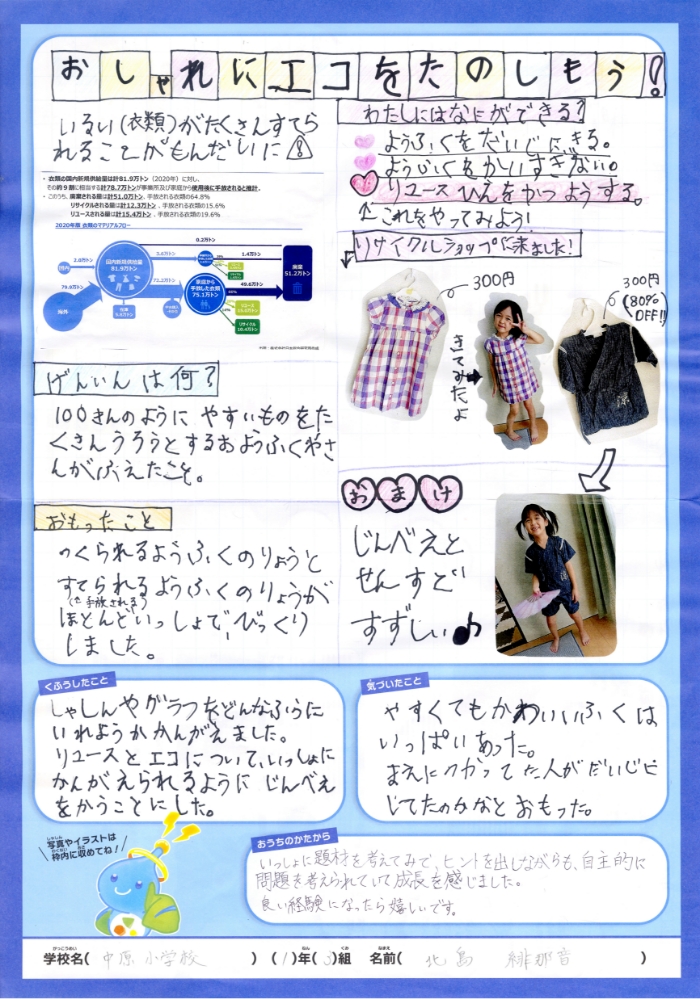 おしゃれにエコをたのしもう!
いるい(衣類)がたくさんすてら
れることがもんだいに⚠
・衣類の国内新規供給量は計81.9万トン(2020年)に対し、
その約9割に相当する計78.7万トンが事業所及び家庭から使用後に手放されると推計。
・このうち、廃棄される量は計51.0万トン、手放される衣類の64.8%
リサイクルされる量は計12.3万トン、手放される衣類の15.6%
リユースされる量は計15.4万トン、手放される衣類の19.6%
2020年度 衣類のマテリアルフロー
0.2万トン
2.0万トン
国内
79.9万トン
海外
国内新規供給量
81.9万トン
1.4万トン
家庭から
手放した衣類
75.1万トン
49.6万トン
廃棄
51.2万トン
リユース
リサイクル
げんいんは何?
100きんのように やすいものをた
くさんうろうとするおようふくやさ
んがふえたこと。
おもったこと
つくられるようふくのりょうと
すてられるようふくのりょうが
(と手放される)
ほとんどいっしょで、びっくり
しました。
わたしにはなにができる?
ようふくをだいじにきる。
ようふくをかいすぎない。
リユースひんをかつようする。
↑これをやってみよう!
リサイクルショップに来ました!
300円
きてみたよ
300円
(80%
OFF!!)
おまけ
じんべえと
せんすで
すずしい♪
くふうしたこと
しゃしんやグラフをどんなふうに
いれようかかんがえました。
リユースとエコについて、いっしょに
かんがえられるように じんべえ
をかうことにした。
気づいたこと
やすくてもかわいいふくは
いっぱいあった。
まえにつかってた人がだいじに
してたのかなとおもった。
写真やイラストは
枠内に収めてね!
おうちのかたから
いっしょに題材を考えてみて、ヒントを出しながらも、自主的に
問題を考えられていて成長を感じました。
良い経験になったら嬉しいです。
学校名(中原小学校) (1)年(3)組 名前(北島 緋那音)